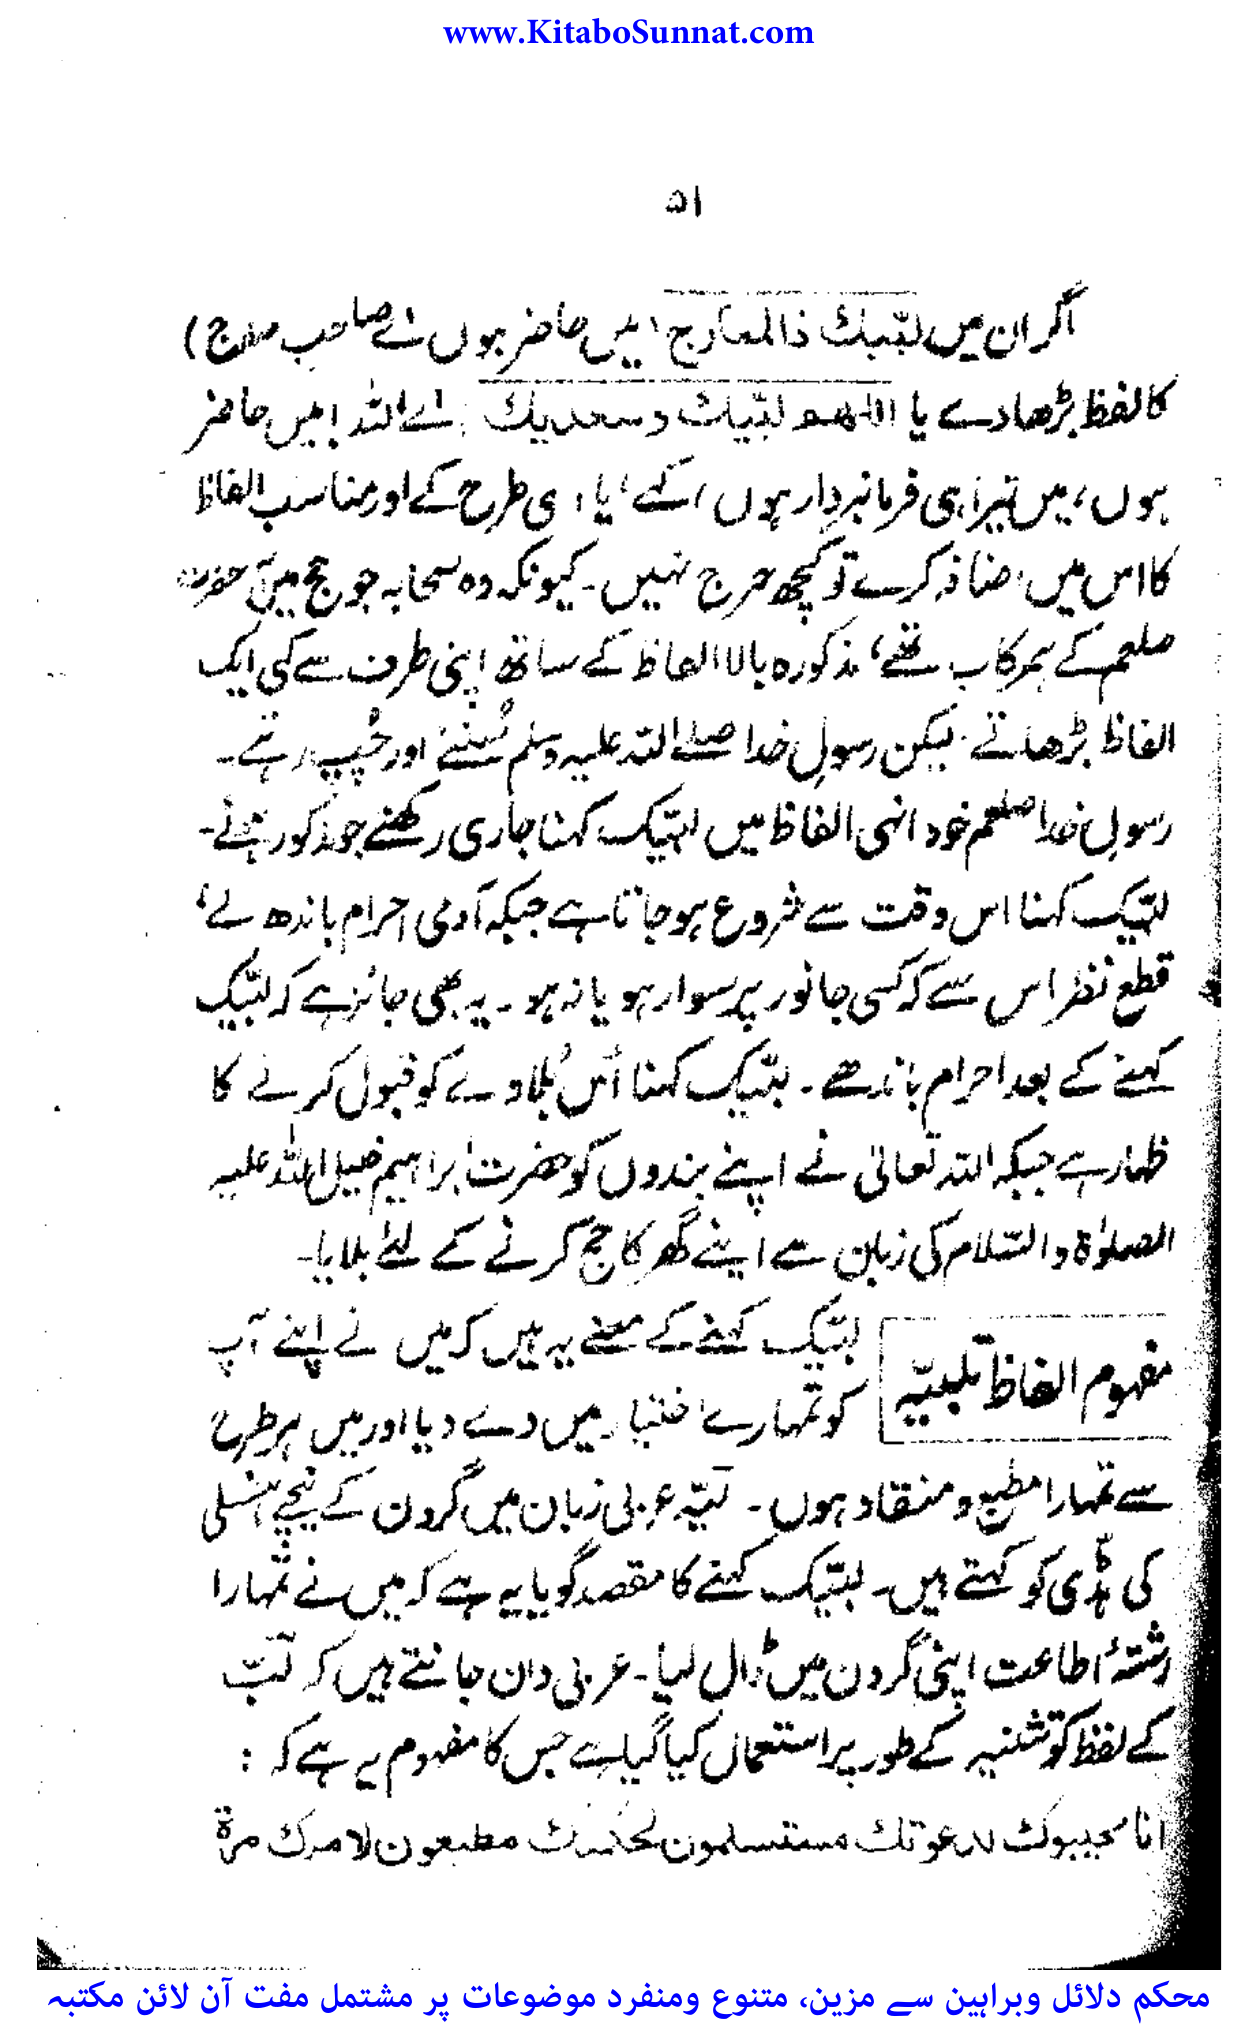 www.KitaboSunnat.com
۵۱
اگر ان میں لبّیك ذالمعارج (میں حاضر ہوں اے صاحب معارج)
کا لفظ بڑھا دے یا اللهم لبّیك وسعدیك (اے اللہ! میں حاضر
ہوں، میں تیرا ہی فرمانبردار ہوں) کہے، یا اسی طرح کے اور مناسب الفاظ
کا اس میں اضافہ کرے تو کچھ حرج نہیں۔ کیونکہ وہ صحابہ جو حج میں آں حضرت
صلعم کے ہمرکاب تھے، مذکورہ بالا الفاظ کے ساتھ اپنی طرف سے کئی ایک
الفاظ بڑھاتے لیکن رسولِ خدا صلے اللہ علیہ وسلم سُنتے اور چُپ رہتے۔
رسولِ خدا صلعم خود انہی الفاظ میں لبّیک کہنا جاری رکھتے جو مذکور ہوئے۔
لبّیک کہنا اس وقت سے شروع ہو جاتا ہے جبکہ آدمی احرام باندھ لے،
قطع نظر اس سے کہ کسی جانور پر سوار ہو یا نہ ہو۔ یہ بھی جائز ہے کہ لبّیک
کہنے کے بعد احرام باندھے۔ لبّیک کہنا اُس بُلاوے کو قبول کرنے کا
ظہار ہے جبکہ اللہ تعالیٰ نے اپنے بندوں کو حضرت ابراہیم خلیل اللہ علیہ
الصلوٰۃ والسّلام کی زبان سے اپنے گھر کا حج کرنے کے لئے بلایا۔
مفہوم الفاظ تلبیّہ
لبّیک کہنے کے معنے یہ ہیں کہ میں نے اپنے آپ
کو تمہارے اختیار میں دے دیا اور میں ہر طرح
سے تمہارا مطیع و منقاد ہوں۔ لَبّہ عربی زبان میں گردن کے نیچے ہنسلی
کی ہڈّی کو کہتے ہیں۔ لبّیک کہنے کا مقصد گویا یہ ہے کہ میں نے تمہارا
رشتۂ اطاعت اپنی گردن میں ڈال لیا۔ عربی دان جانتے ہیں کہ لَبّ
کے لفظ کو تثنیہ کے طور پر استعمال کیا گیا ہے جس کا مفہوم یہ ہے کہ :
انا مجیبوك لدعوتك مستسلمون لحكمك مطیعون لامرك مرة
محکم دلائل وبراہین سے مزین، متنوع ومنفرد موضوعات پر مشتمل مفت آن لائن مکتبہ